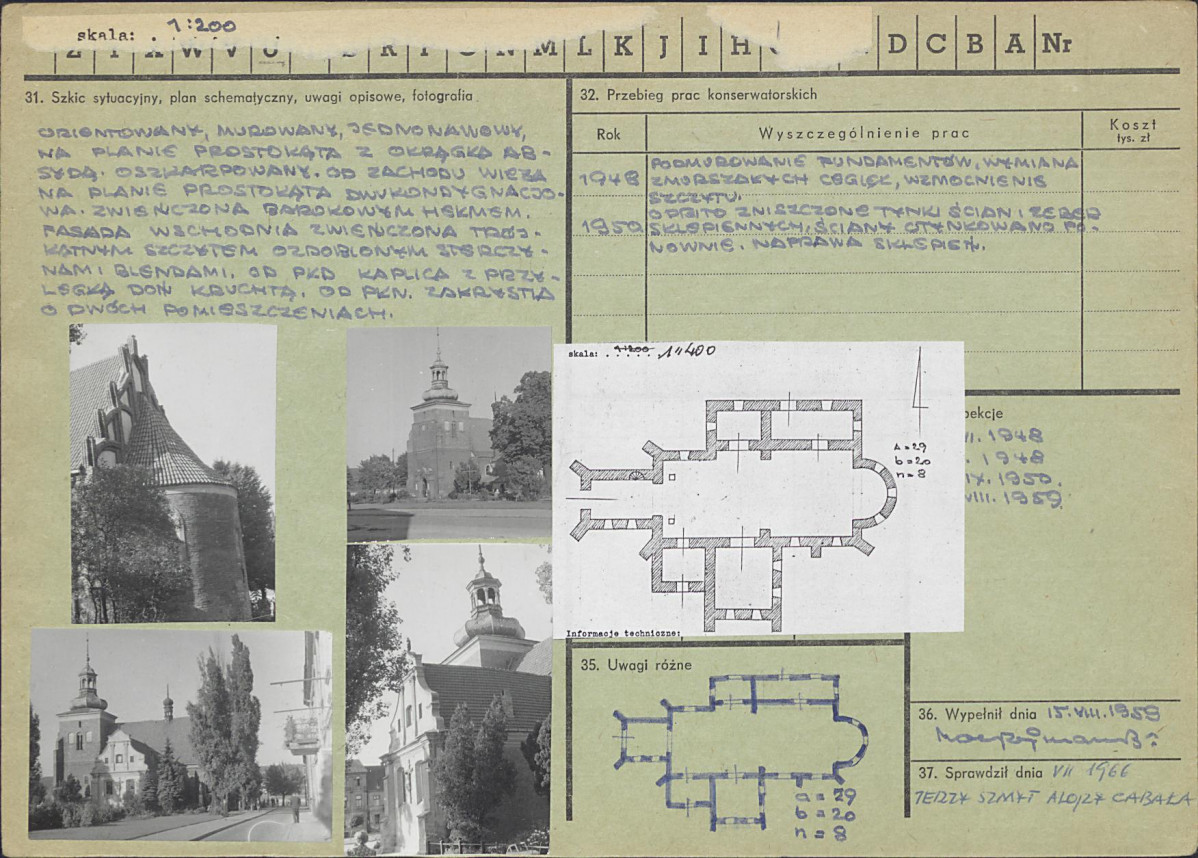 skala: . 1:200
Z Y X W V U S R P O N M L K J I H D C B A Nr
31. Szkic sytuacyjny, plan schematyczny, uwagi opisowe, fotografia
ORIENTOWANY, MUROWANY, JEDNONAWOWY,
NA PLANIE PROSTOKĄTA Z OKRĄGŁĄ AB-
SYDĄ. OSZKARPOWANY. OD ZACHODU WIEŻA
NA PLANIE PROSTOKĄTA DWUKONDYGNACJO-
WA. ZWIEŃCZONA BAROKOWYM HEŁMEM.
FASADA WSCHODNIA ZWIEŃCZONA TRÓJ-
KĄTNYM SZCZYTEM OZDOBLONYM STERCZY-
NAMI BLENDAMI, OD PŁD KAPLICA Z PRZY-
LEGŁĄ DOŃ KRUCHTĄ, OD PŁN. ZAKRYSTIA
O DWÓCH POMIESZCZENIACH.
32. Przebieg prac konserwatorskich
Rok Wyszczególnienie prac Koszt
tys. zł
1948 PODMUROWANIE FUNDAMENTÓW, WYMIANA
ZMURSZAŁYCH CEGIEŁ, WZMOCNIENIE
SZCZYTU.
1950 ODBITO ZNISZCZONE TYNKI ŚCIAN I ŻEBER
SKLEPIENNYCH, ŚCIANY OTYNKOWANO PO-
NOWNIE. NAPRAWA SKLEPIEŃ.
skala: 1:200 1:400
a = 29
b = 20
n = 8
Informacje techniczne:
pekcje
VII. 1948
. 1948
IX. 1950.
VIII. 1959.
35. Uwagi różne
a = 29
b = 20
n = 8
36. Wypełnił dnia 15.VIII.1959
37. Sprawdził dnia VII 1966
JERZY SZMYT ALOJZY CABAŁA